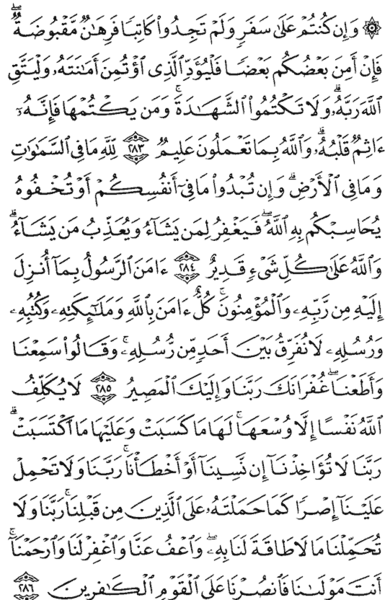 ۞ وَإِن كُنتُمْ عَلَىٰ سَفَرٍ وَلَمْ تَجِدُوا۟ كَاتِبًا فَرِهَٰنٌ مَّقْبُوضَةٌ ۖ
فَإِنْ أَمِنَ بَعْضُكُم بَعْضًا فَلْيُؤَدِّ ٱلَّذِى ٱؤْتُمِنَ أَمَٰنَتَهُۥ وَلْيَتَّقِ
ٱللَّهَ رَبَّهُۥ ۗ وَلَا تَكْتُمُوا۟ ٱلشَّهَٰدَةَ ۚ وَمَن يَكْتُمْهَا فَإِنَّهُۥٓ
ءَاثِمٌ قَلْبُهُۥ ۗ وَٱللَّهُ بِمَا تَعْمَلُونَ عَلِيمٌ ٢٨٣ لِّلَّهِ مَا فِى ٱلسَّمَٰوَٰتِ
وَمَا فِى ٱلْأَرْضِ ۗ وَإِن تُبْدُوا۟ مَا فِىٓ أَنفُسِكُمْ أَوْ تُخْفُوهُ
يُحَاسِبْكُم بِهِ ٱللَّهُ ۖ فَيَغْفِرُ لِمَن يَشَآءُ وَيُعَذِّبُ مَن يَشَآءُ ۗ
وَٱللَّهُ عَلَىٰ كُلِّ شَىْءٍ قَدِيرٌ ٢٨٤ ءَامَنَ ٱلرَّسُولُ بِمَآ أُنزِلَ
إِلَيْهِ مِن رَّبِّهِۦ وَٱلْمُؤْمِنُونَ ۚ كُلٌّ ءَامَنَ بِٱللَّهِ وَمَلَٰٓئِكَتِهِۦ وَكُتُبِهِۦ
وَرُسُلِهِۦ لَا نُفَرِّقُ بَيْنَ أَحَدٍ مِّن رُّسُلِهِۦ ۚ وَقَالُوا۟ سَمِعْنَا
وَأَطَعْنَا ۖ غُفْرَانَكَ رَبَّنَا وَإِلَيْكَ ٱلْمَصِيرُ ٢٨٥ لَا يُكَلِّفُ
ٱللَّهُ نَفْسًا إِلَّا وُسْعَهَا ۚ لَهَا مَا كَسَبَتْ وَعَلَيْهَا مَا ٱكْتَسَبَتْ ۗ
رَبَّنَا لَا تُؤَاخِذْنَآ إِن نَّسِينَآ أَوْ أَخْطَأْنَا ۚ رَبَّنَا وَلَا تَحْمِلْ
عَلَيْنَآ إِصْرًا كَمَا حَمَلْتَهُۥ عَلَى ٱلَّذِينَ مِن قَبْلِنَا ۚ رَبَّنَا وَلَا
تُحَمِّلْنَا مَا لَا طَاقَةَ لَنَا بِهِۦ ۖ وَٱعْفُ عَنَّا وَٱغْفِرْ لَنَا وَٱرْحَمْنَآ ۚ
أَنتَ مَوْلَىٰنَا فَٱنصُرْنَا عَلَى ٱلْقَوْمِ ٱلْكَٰفِرِينَ ٢٨٦